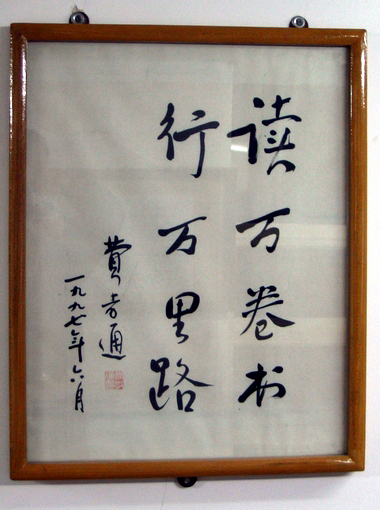 读万卷书
行万里路
费孝通
一九九七年六月